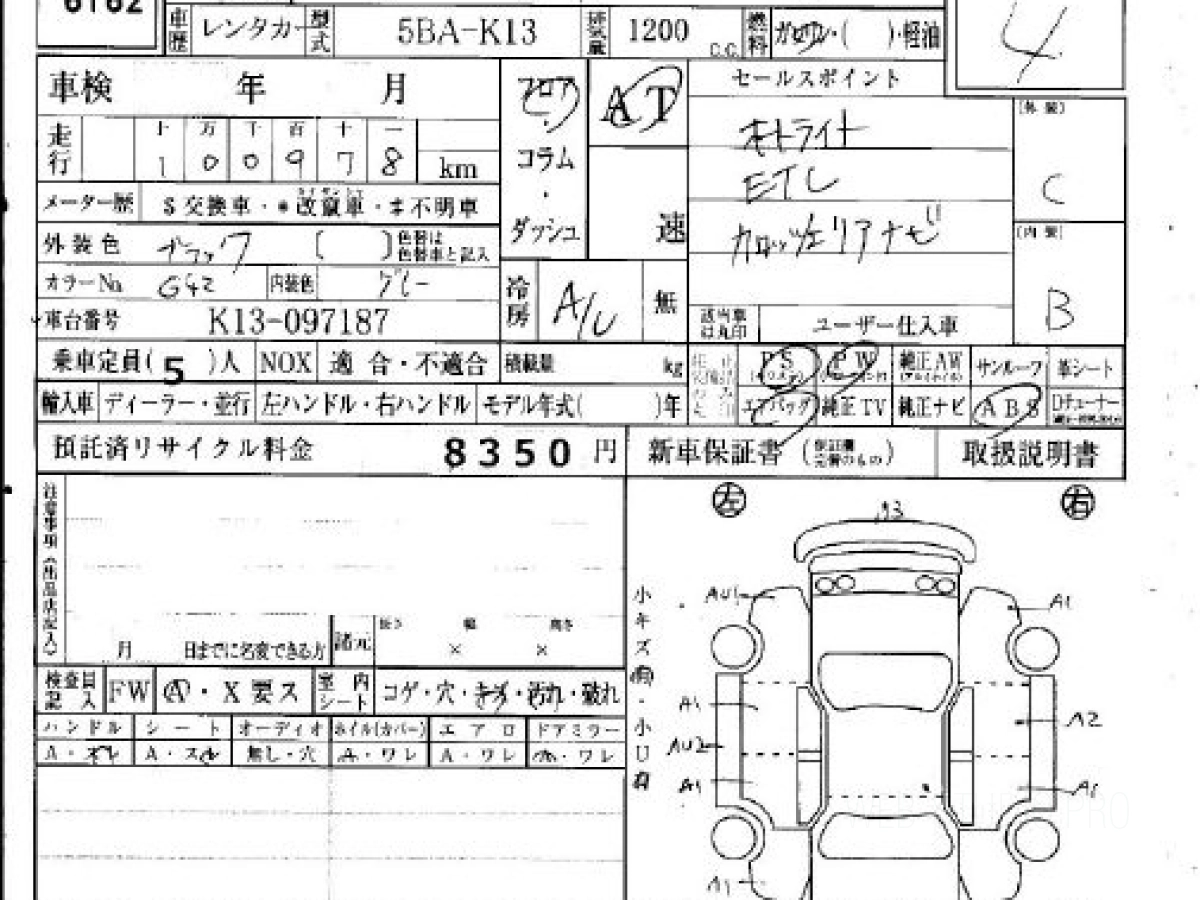 6162
車歴 レンタカー 型式 5BA-K13 排気量 1200 C.C. 燃料 ガソリン・( )・軽油
4
車検 年 月
フロア・コラム・ダッシュ
AT
速
セールスポイント
オートライト
ETC
カロッツェリアナビ
[外装]
C
[内装]
B
走行 十 万 千 百 十 一
1 0 0 9 7 8 km
メーター歴 $交換車・*改竄車・#不明車
外装色 ブラック ( ) 色替は色替車と記入
カラーNo. G42 内装色 グレー
冷房 A/C 無
車台番号 K13-097187
該当車は丸印 ユーザー仕入車
乗車定員( 5 )人 NOX 適合・不適合 積載量 kg
PS PW 純正AW サンルーフ 革シート
輸入車 ディーラー・並行 左ハンドル・右ハンドル モデル年式( )年
エアバッグ 純正TV 純正ナビ ABS Dチューナー
預託済リサイクル料金 8350 円 新車保証書 取扱説明書
注意事項(出品店記入)
月 日までに名変できる方 諸元 長さ 幅 高さ
× ×
検査員記入 FW A・X要ス 室内シート コゲ・穴・キズ・汚れ・破れ
ハンドル シート オーディオ ホイル(カバー) エアロ ドアミラー
A・スレ A・スレ 無し・穴 A・ワレ A・ワレ A・ワレ
左 右
小キズ有・小U有
AU1
A1
A1
A2
AU2
A1
A1
A1